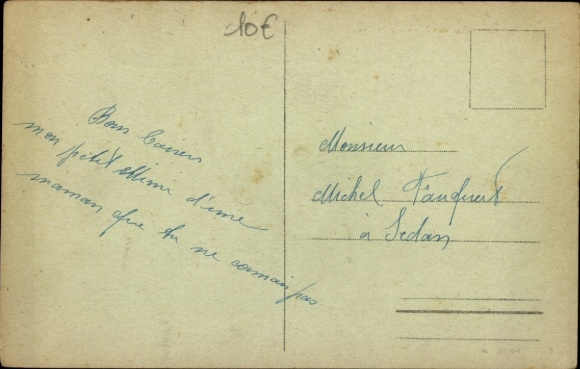 10€
Bons Baisers
mon petit Mimi d'une
maman que tu ne connais pas
Monsieur
Michel
à Sedan